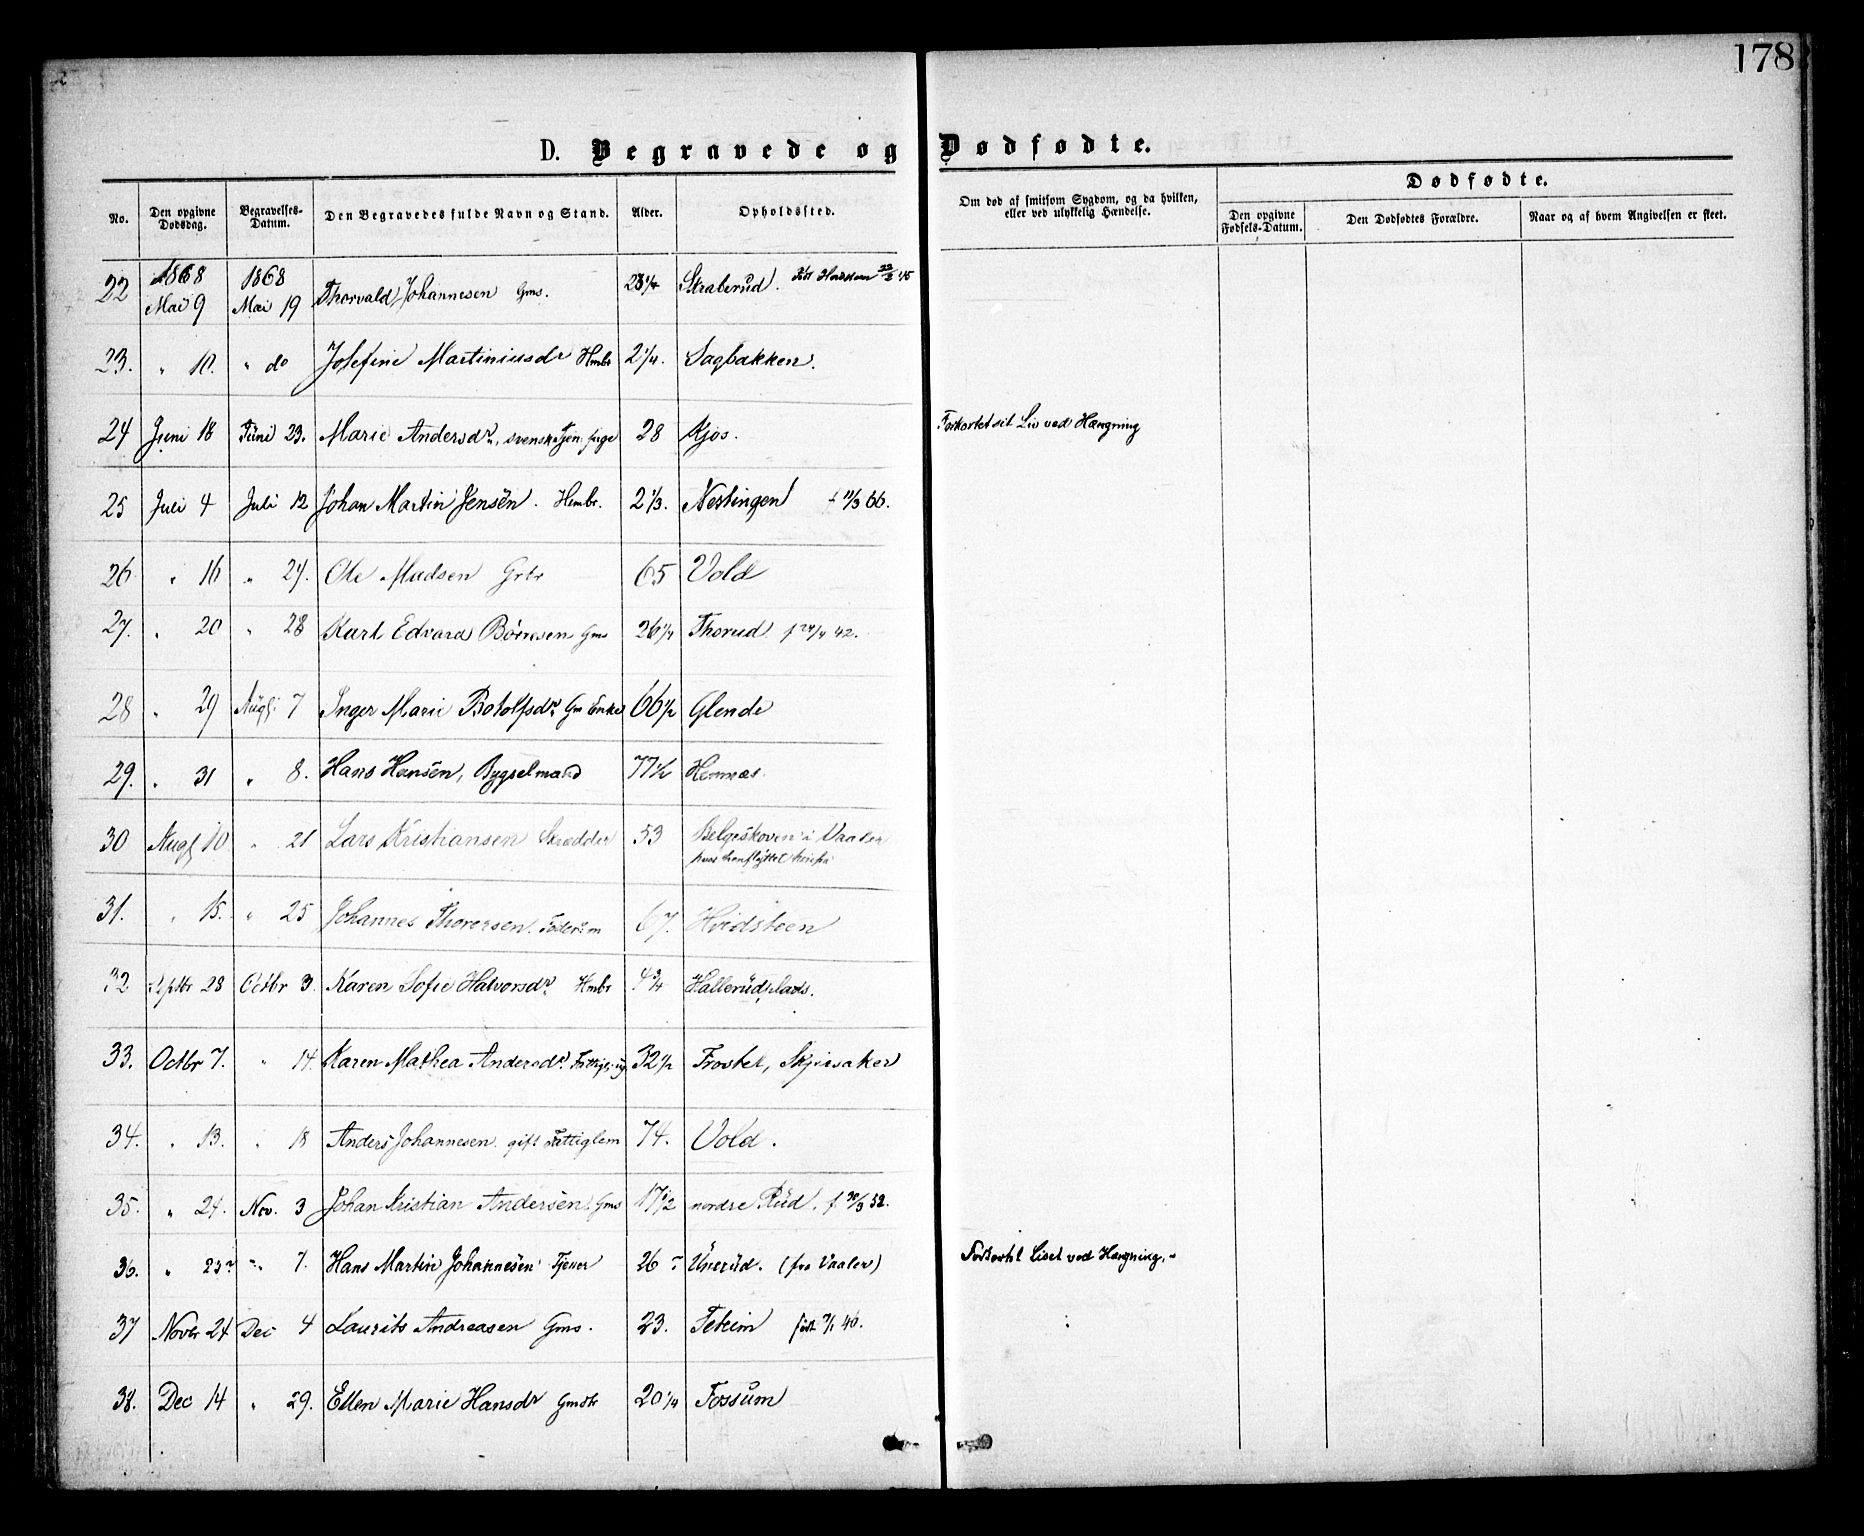 178
D. Begravede og Dødfødte.
No. Den opgivne Dødsdag. Begravelses-Datum. Den Begravedes fulde Navn og Stand. Alder. Opholdssted. Om død af smitsom Sygdom, og da hvilken, eller ved ulykkelig Hændelse. Dødfødte.
Den opgivne Fødsels-Datum. Den Dødfødtes Forældre. Naar og af hvem Angivelsen er skeet.
1868 1868
22 Mai 9 Mai 19 Thorvald Johannesen Gms. 23 1/4 Skraberud.
23. " 10. " do Josefine Martiniusdr Hmbr 2 1/4. Sagbakken.
24 Juni 18 Juni 23. Marie Andersdr, svensk Tjen. pige 28 Kjos. Forkortet sit Liv ved Hængning
25 Juli 4 Juli 12 Johan Martin Jensen. Hmbr. 2 1/3. Nestingen 11/3 66.
26 " 16 " 24. Ole Madsen Grbr 65 Vold
27. " 20 " 28 Karl Edvard Börresen Gms 26 1/4 Thorud f 24/4 42.
28 " 29 Augs: 7 Inger Marie Botolfsdr Gm Enke 66 1/2 Glende
29. " 31 " 8. Hans Hansen, Bygselmand 77 1/2 Hemnæs.
30 Augs 10 " 21 Lars Kristiansen Skrædder 53 Belgeskoven i Vaaler
31. " 15. " 25 Johannes Thoresen. Föderm 67. Hvidsteen
32 Septbr 28 Octbr 3. Karen Sofie Halvorsdr Hmbr 4 3/4 Hallerüdplads.
33. Octbr 7. " 14. Karen Mathea Andersdr. 32 1/2 Froster, Skjersaker
34. " 13. " 18 Anders Johannesen. gift Fattiglem 74. Vold.
35. " 24. Nov. 3 Johan Kristian Andersen. Gms 17 1/2 nordre Rüd. f 30/3 52.
36. " 23? " 7. Hans Martin Johannesen Tjener 26 Unerüd. (fra Vaaler) Forkortet Livet ved Hængning.
37 Novbr 24 Dec 4 Laurits Andreasen Gms. 23. Feteim født 46.
38. Dec 14 " 29. Ellen Marie Hansdr Gmdtr 20 1/4 Fossum